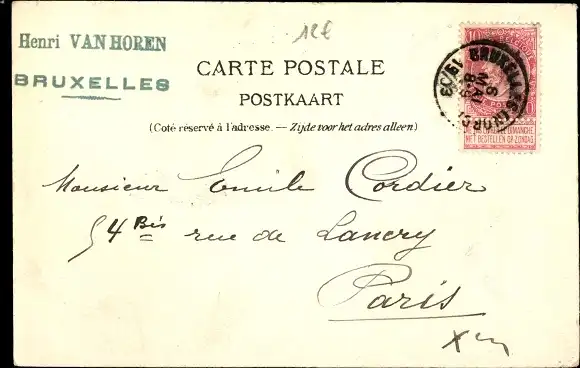 12€
Henri VAN HOREN
BRUXELLES
CARTE POSTALE
POSTKAART
(Coté réservé à l'adresse. — Zijde voor het adres alleen)
10
BRUXELLES
8 MAI
NE PAS LIVRER LE DIMANCHE
NIET BESTELLEN OP ZONDAG
Monsieur Emile Cordier
54 Bis rue de Lancry
Paris
X